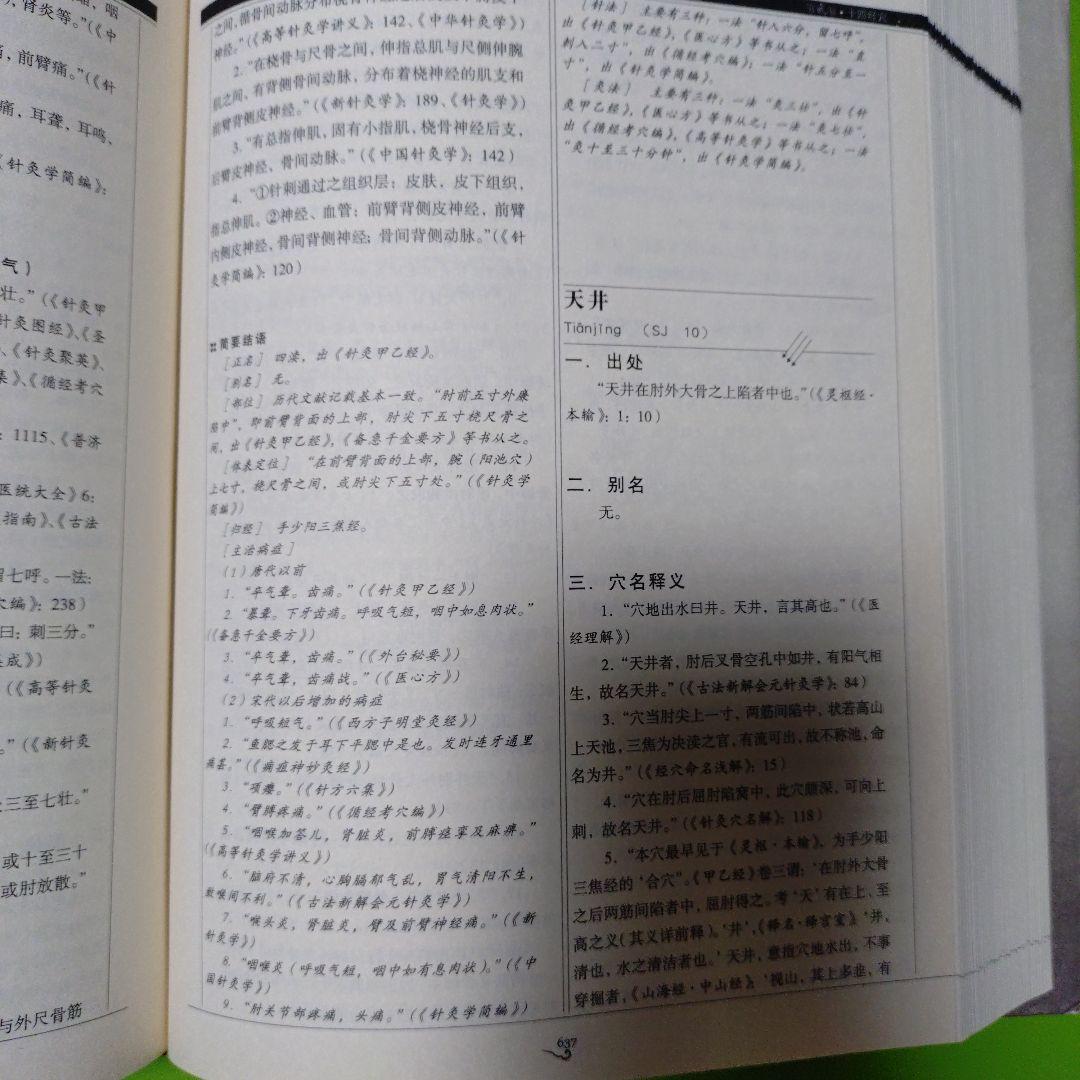 肾炎等。”（《中
前臂痛。”（《针
痛，耳聋，耳鸣、
《针灸学简编》：
气）
壮。”（《针灸甲
针灸图经》、《圣
、《针灸聚英》、
集》、《循经考穴
：1115、《普济
医统大全》6：
指南》、《古法
留七呼。一法：
穴编》：238）
曰：刺三分。”
集成》）
（《高等针灸
。”（《新针灸
三至七壮。”
或十至三十
或肘放散。”
与外尺骨筋
神经。”（《高等针灸学讲义》：142、《中华针灸学》）
2. “在桡骨与尺骨之间，伸指总肌与尺侧伸腕
肌之间、有背侧骨间动脉，分布着桡神经的肌支和
前臂背侧皮神经。”（《新针灸学》：189、《针灸学》）
3. “有总指伸肌，固有小指肌，桡骨神经后支，
后臂皮神经、骨间动脉。”（《中国针灸学》：142）
4. “①针刺通过之组织层：皮肤，皮下组织，
指总伸肌。②神经、血管：前臂背侧皮神经，前臂
内侧皮神经、骨间背侧神经；骨间背侧动脉。”（《针
灸学简编》：120）
简要结语
［正名］ 四渎，出《针灸甲乙经》。
［别名］ 无。
［部位］ 历代文献记载基本一致。“肘前五寸外廉
陷中”，即前臂背面的上部，肘尖下五寸桡尺骨之
间，出《针灸甲乙经》，《备急千金要方》等书从之。
［体表定位］ “在前臂背面的上部，腕（阳池穴）
上七寸，桡尺骨之间，或肘尖下五寸处。”（《针灸学
简编》）
［归经］ 手少阳三焦经。
［主治病症］
（1）唐代以前
1. “卒气聋。齿痛。”（《针灸甲乙经》）
2. “暴聋。下牙齿痛。呼吸气短，咽中如息肉状。”
（《备急千金要方》）
3. “卒气聋，齿痛。”（《外台秘要》）
4. “卒气聋，齿痛战。”（《医心方》）
（2）宋代以后增加的病症
1. “呼吸短气。”（《西方子明堂灸经》）
2. “鱼腮之发于耳下平腮中是也。发时连牙通里
痛甚。”（《痈疽神妙灸经》）
3. “项瘿。”（《针方六集》）
4. “臂膊疼痛。”（《循经考穴编》）
5. “咽喉加答儿，肾脏炎，前膊痉挛及麻痹。”
（《高等针灸学讲义》）
6. “脑府不清，心胸膈郁气乱，胃气清阳不生，
致喉间不利。”（《古法新解会元针灸学》）
7. “喉头炎，肾脏炎，臂及前臂神经痛。”（《新
针灸学》）
8. “咽喉炎（呼吸气短，咽中如有息肉状）。”（《中
国针灸学》）
9. “肘关节部疼痛，头痛。”（《针灸学简编》）
［针法］ 主要有三种：一法“针入六分，留七呼”，
出《针灸甲乙经》，《医心方》等书从之；一法“直
刺入二寸”，出《循经考穴编》；一法“针五分至一
寸”，出《针灸学简编》。
［灸法］ 主要有三种：一法“灸三壮”，出《针
灸甲乙经》，《医心方》等书从之；一法“灸七壮”，
出《循经考穴编》，《高等针灸学》等书从之；一法
“灸十至三十分钟”，出《针灸学简编》。
天井
Tiānjǐng （SJ 10）
一．出处
“天井在肘外大骨之上陷者中也。”（《灵枢经·
本输》：1：10）
二．别名
无。
三．穴名释义
1. “穴地出水曰井。天井，言其高也。”（《医
经理解》）
2. “天井者，肘后叉骨空孔中如井，有阳气相
生，故名天井。”（《古法新解会元针灸学》：84）
3. “穴当肘尖上一寸，两筋间陷中，状若高山
上天池，三焦为决渎之官，有流可出，故不称池，命
名为井。”（《经穴命名浅解》：15）
4. “穴在肘后屈肘陷窝中，此穴颇深，可向上
刺，故名天井。”（《针灸穴名解》：118）
5. “本穴最早见于《灵枢·本输》，为手少阳
三焦经的‘合穴’。《甲乙经》卷三谓：‘在肘外大骨
之后两筋间陷者中，屈肘得之。考‘天’有在上、至
高之义（其义详前释）。‘井’，《释名·释宫室》‘井，
清也，水之清洁者也。’天井，意指穴地水出，不事
穿掘者，《山海经·中山经》：‘视山，其上多韭，有
637